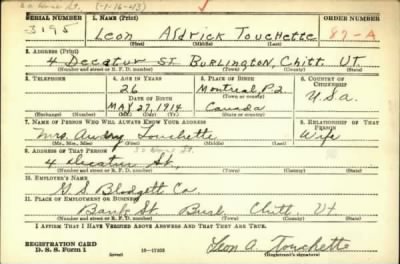 (1-16-43)
SERIAL NUMBER 1. NAME (Print) ORDER NUMBER
3195 Leon Aldrick Touchette 87-A
(First) (Middle) (Last)
2. ADDRESS (Print)
4 Decatur St. Burlington, Chitt. Vt.
(Number and street or R. F. D. number) (Town) (County) (State)
3. TELEPHONE 4. AGE IN YEARS 5. PLACE OF BIRTH 6. COUNTRY OF CITIZENSHIP
26 Montreal, P.Q. U.S.a.
DATE OF BIRTH
May 27, 1914 Canada
(Exchange) (Number) (Mo.) (Day) (Yr.) (State or country)
7. NAME OF PERSON WHO WILL ALWAYS KNOW YOUR ADDRESS 8. RELATIONSHIP OF THAT PERSON
Mrs. Audry Touchette Wife
(Mr., Mrs., Miss) (First) (Middle) (Last)
9. ADDRESS OF THAT PERSON
4 Decatur St.,
(Number and street or R. F. D. number) (Town) (County) (State)
10. EMPLOYER'S NAME
G. S. Blodgett Co.
11. PLACE OF EMPLOYMENT OR BUSINESS
Bank St. Burl. Chitt. Vt
(Number and street or R. F. D. number) (Town) (County) (State)
I AFFIRM THAT I HAVE VERIFIED ABOVE ANSWERS AND THAT THEY ARE TRUE.
REGISTRATION CARD
D. S. S. Form 1 (over) Leon A. Touchette
(Registrant's signature)